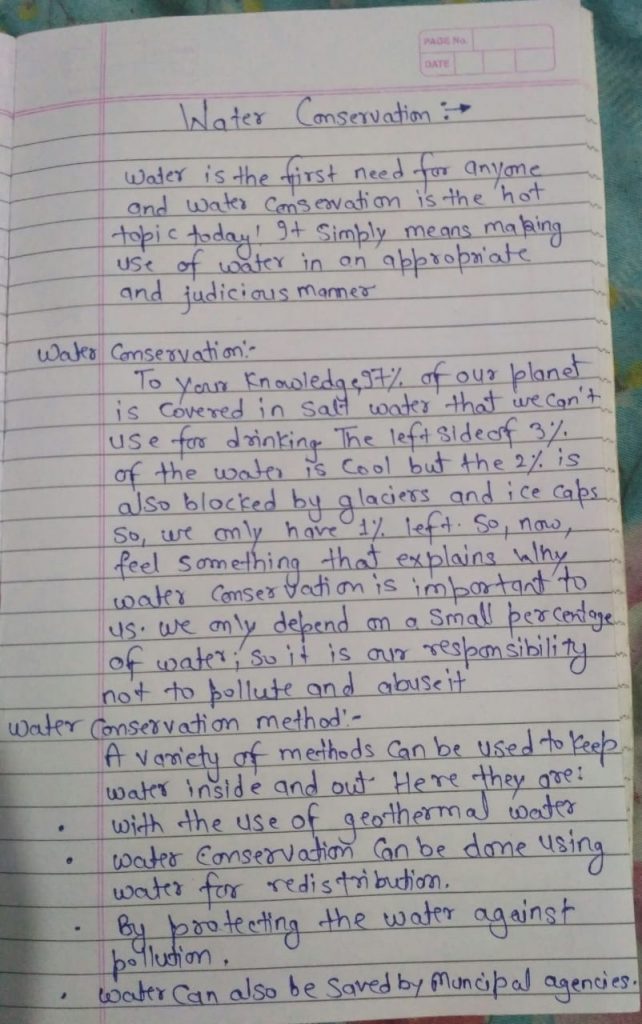 PAGE No.
DATE
Water Conservation :→
Water is the first need for anyone
and water Conservation is the hot
topic today! It Simply means making
use of water in an appropriate
and judicious manner
Water Conservation:-
To your Knowledge, 97% of our planet
is Covered in salt water that we can't
use for drinking. The left side of 3%.
of the water is Cool but the 2% is
also blocked by glaciers and ice caps
So, we only have 1% left. So, now,
feel something that explains why
water Conservation is important to
us. we only depend on a small percentage
of water; so it is our responsibility
not to pollute and abuse it
Water Conservation method:-
A variety of methods Can be used to keep
water inside and out. Here they are:
• with the use of geothermal water
• water Conservation Can be done using
water for redistribution.
• By protecting the water against
pollution.
• water Can also be saved by Muncipal agencies.